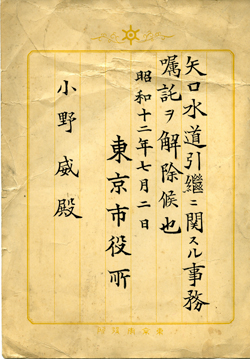 矢口水道引繼ニ関スル事務
嘱託ヲ解除候也
昭和十二年七月二日
東京市役所
小野威殿